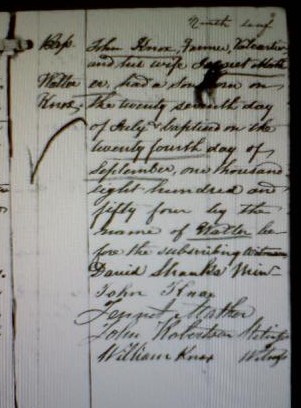 Ninth leaf
Bap.
Walter
Knox
John Knox, Farmer, Valcartier
and his wife Jannet Math
er, had a son born on
the twenty seventh day
of July & baptised on the
twenty fourth day of
September, one thousand
eight hundred and
fifty four by the
name of Walter be
fore the subscribing witnesses
David Shanks Minr.
John Knox
Jennet Mather
John Robertson Witness
William Knox Witness